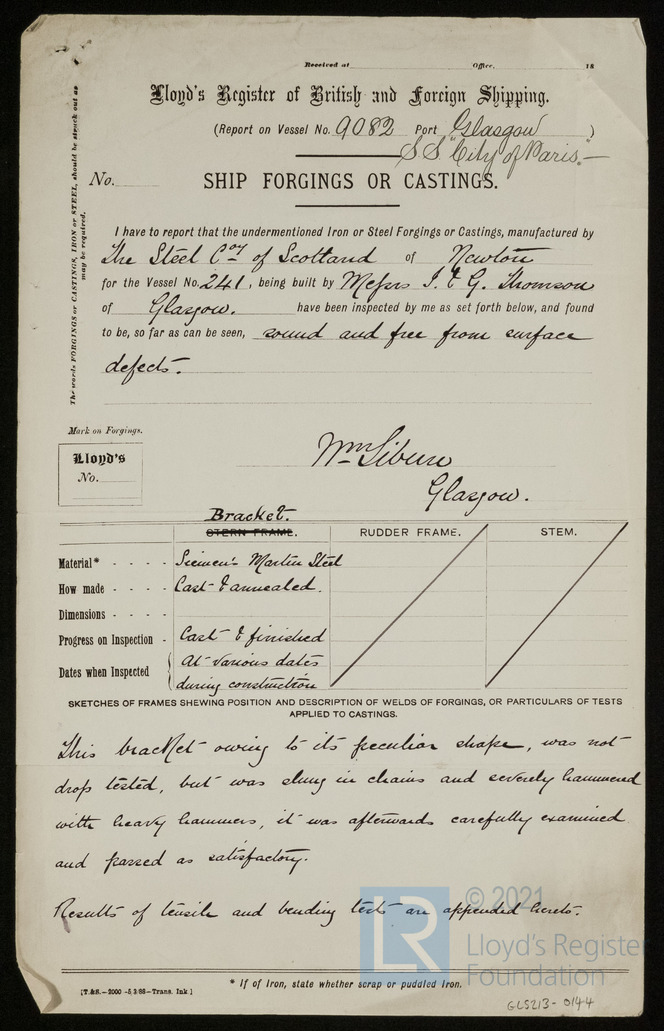 Received at Office, 18
Lloyd's Register of British and Foreign Shipping.
(Report on Vessel No. 9082 Port Glasgow )
S.S. "City of Paris."—
No.
SHIP FORGINGS OR CASTINGS.
The words FORGINGS or CASTINGS, IRON or STEEL, should be struck out as
may be required.
I have to report that the undermentioned Iron or Steel Forgings or Castings, manufactured by
The Steel Coy of Scotland of Newton
for the Vessel No. 241, being built by Messrs J. & G. Thomson
of Glasgow. have been inspected by me as set forth below, and found
to be, so far as can be seen, sound and free from surface
defects.
Mark on Forgings.
Lloyd's
No.
Wm
Glasgow.
Bracket.
STERN FRAME. RUDDER FRAME. STEM.
Material* - - - - Siemen's Martin Steel
How made - - - - Cast & annealed.
Dimensions - - - -
Progress on Inspection - Cast & finished
Dates when Inspected { At various dates
during construction
SKETCHES OF FRAMES SHEWING POSITION AND DESCRIPTION OF WELDS OF FORGINGS, OR PARTICULARS OF TESTS
APPLIED TO CASTINGS.
This bracket owing to its peculiar shape, was not
drop tested, but was slung in chains and severely hammered
with heavy hammers, it was afterwards carefully examined
and passed as satisfactory.
Results of tensile and bending tests are appended hereto.
LR
© 2021
Lloyd's Register
Foundation
* If of Iron, state whether scrap or puddled Iron.
[T.&S.—2000—5,3/88—Trans. Ink.]
GLS213-0144